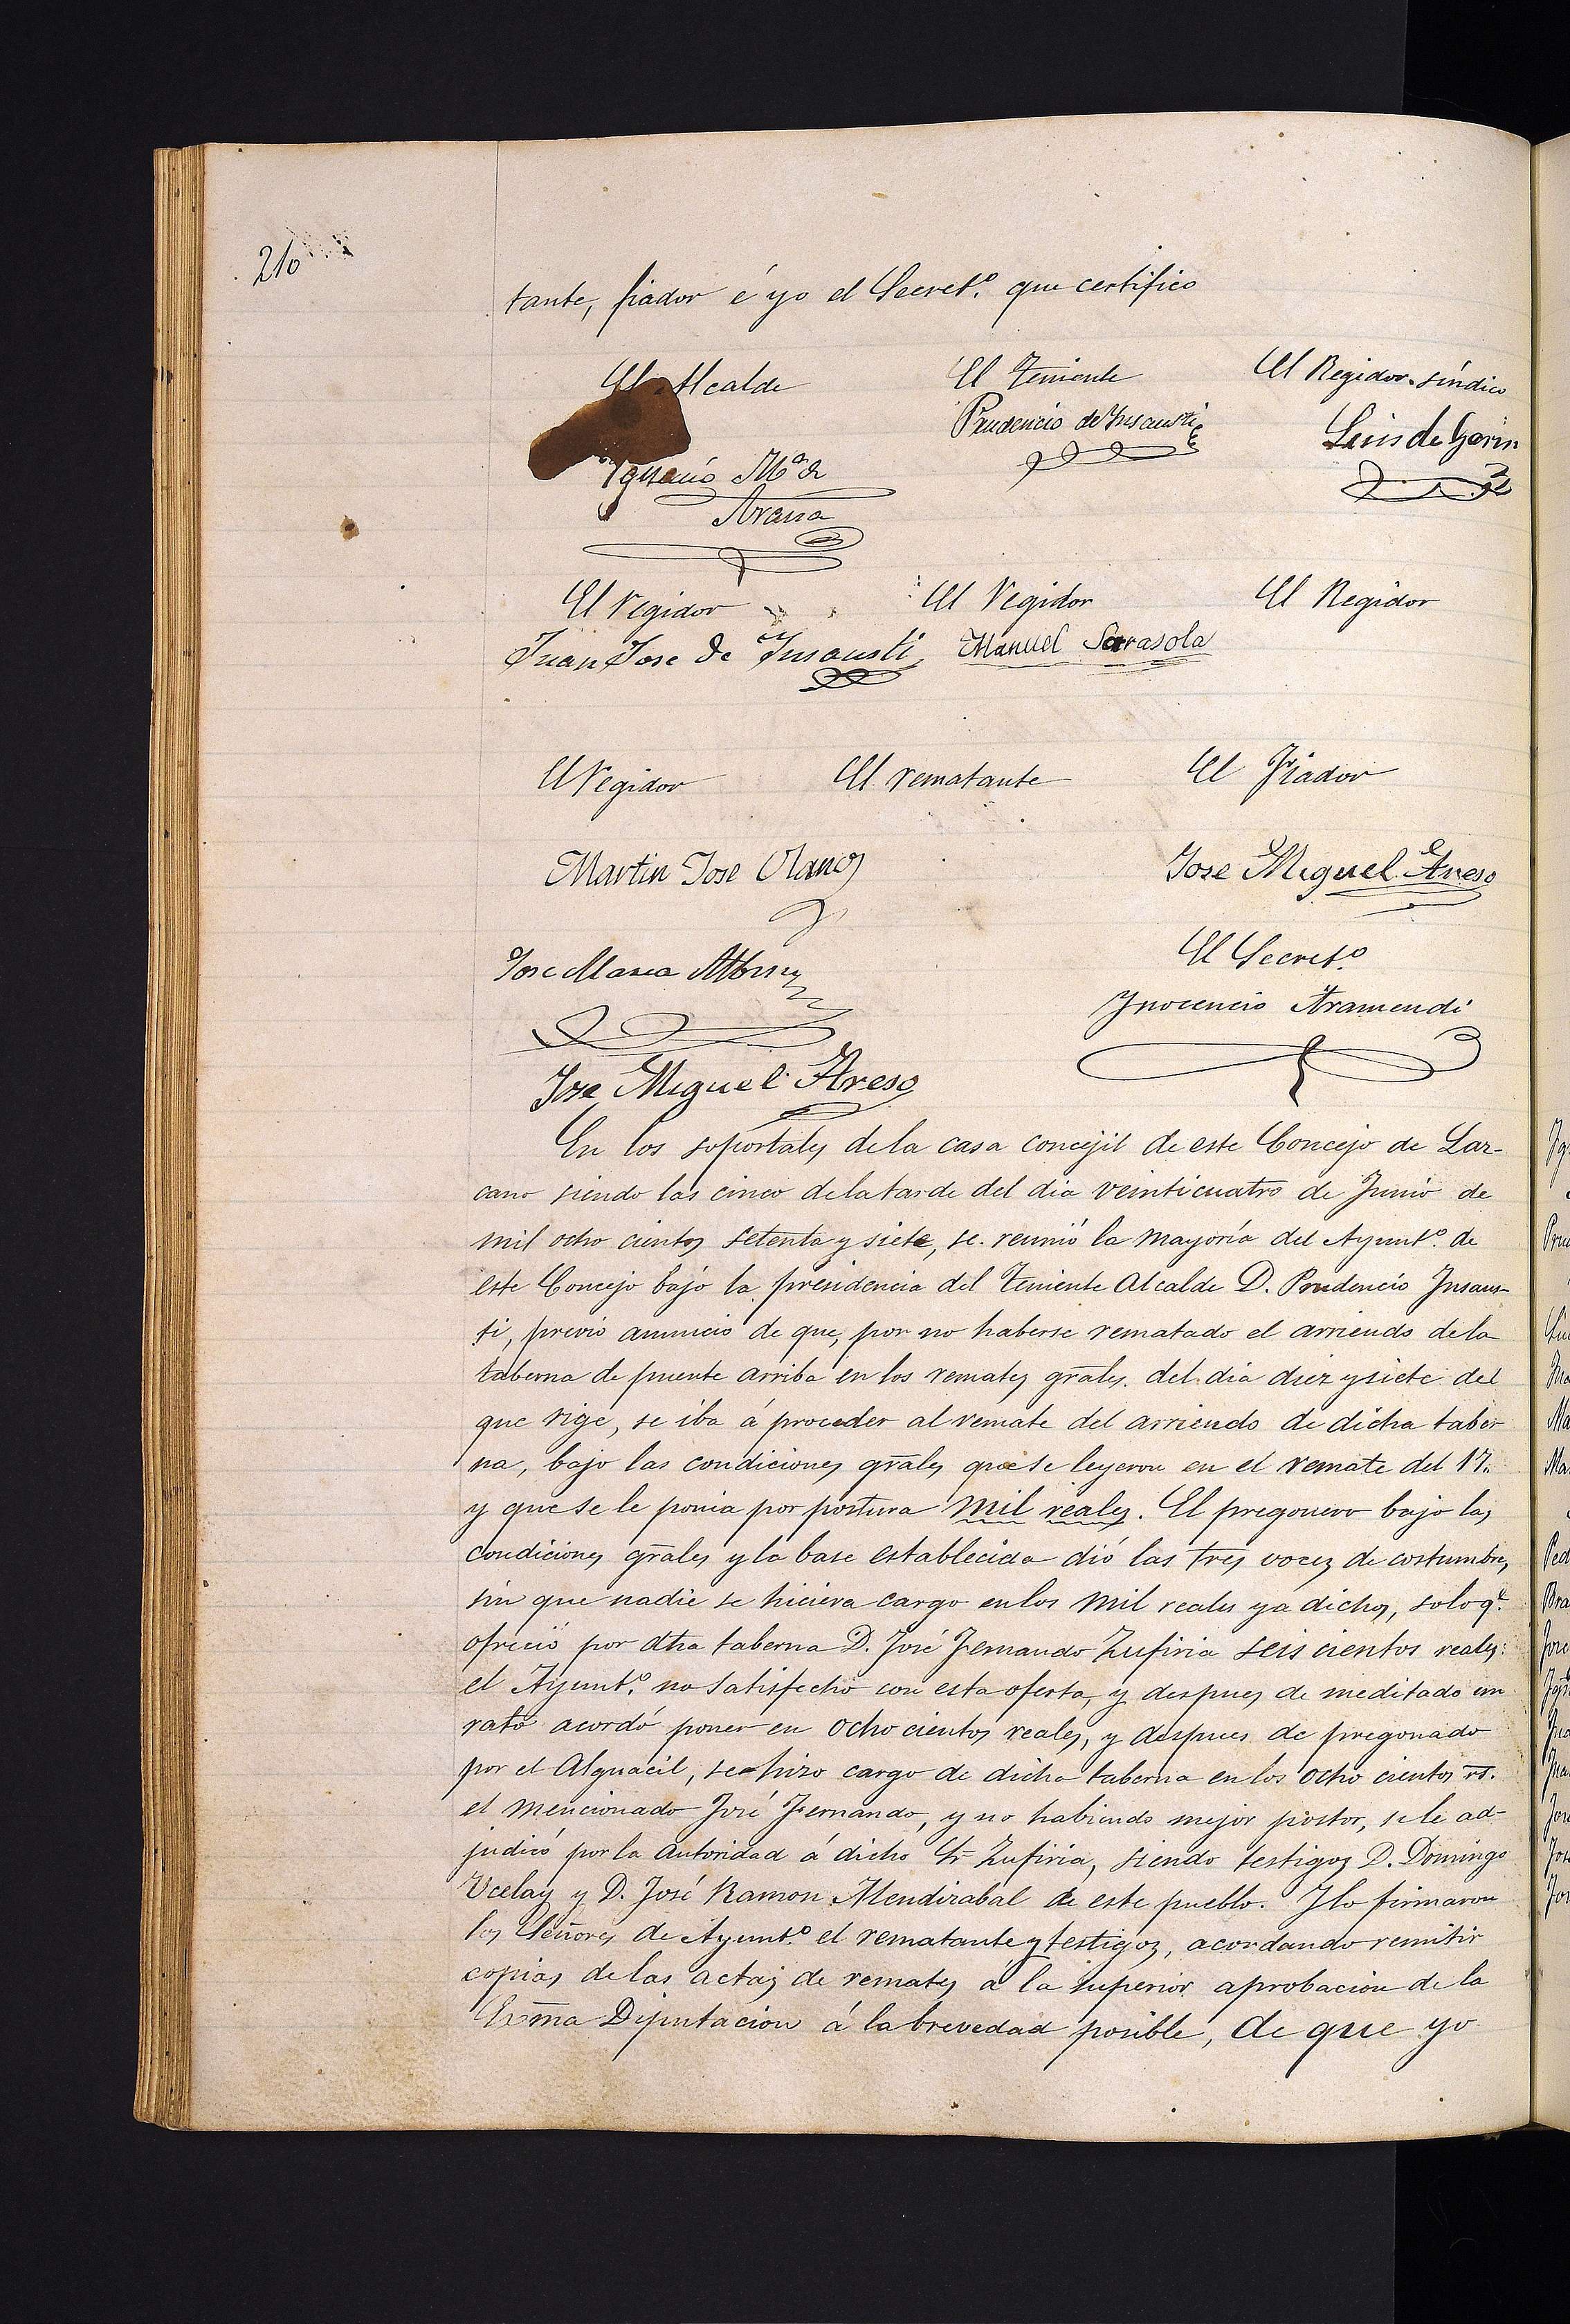 210
tante, fiador é yo el Secret.º que certifico
El Alcalde El Teniente El Regidor síndico
Prudencio de Insausti Luis de Gorin
Ignacio M.ª de
Arana
El Regidor El Regidor El Regidor
Juan Jose de Insausti Manuel Sarasola
El Regidor El rematante El Fiador
Martin Jose Olano Jose Miguel Areso
Jose Maria El Secret.º
Inocencio Aramendi
Jose Miguel Areso
En los soportales de la casa concejil de este Concejo de Laz-
cano siendo las cinco de la tarde del dia veinticuatro de Junio de
mil ocho cientos setenta y siete, se reunió la mayoría del Ayunt.º de
este Concejo bajo la presidencia del Teniente Alcalde D. Prudencio Insaus-
ti, previo anuncio de que, por no haberse rematado el arriendo de la
taberna de puente arriba en los remates grales. del dia diez y siete del
que rige, se iba á proceder al remate del arriendo de dicha taber
na, bajo las condiciones grales que se leyeron en el remate del 17.
y que se le ponia por postura mil reales. El pregonero bajo las
condiciones grales y la base establecida dió las tres voces de costumbre,
sin que nadie se hiciera cargo en los mil reales ya dichos, solo q.e
ofreció por dha taberna D. José Fernando Zufiria seis cientos reales:
el Ayunt.º no satisfecho con esta oferta, y despues de meditado un
rato acordó poner en ocho cientos reales, y despues de pregonado
por el Alguacil, se hizo cargo de dicha taberna en los ocho cientos rs.
el mencionado José Fernando, y no habiendo mejor postor, se le ad-
judicó por la autoridad á dicho Sr Zufiria, siendo testigos D. Domingo
Ucelay y D. José Ramon Mendizabal de este pueblo. Y lo firmaron
los Señores de Ayunt.º el rematante y testigos, acordando remitir
copias de las actas de remates á la superior aprobacion de la
Exma Diputacion á la brevedad posible, de que yo